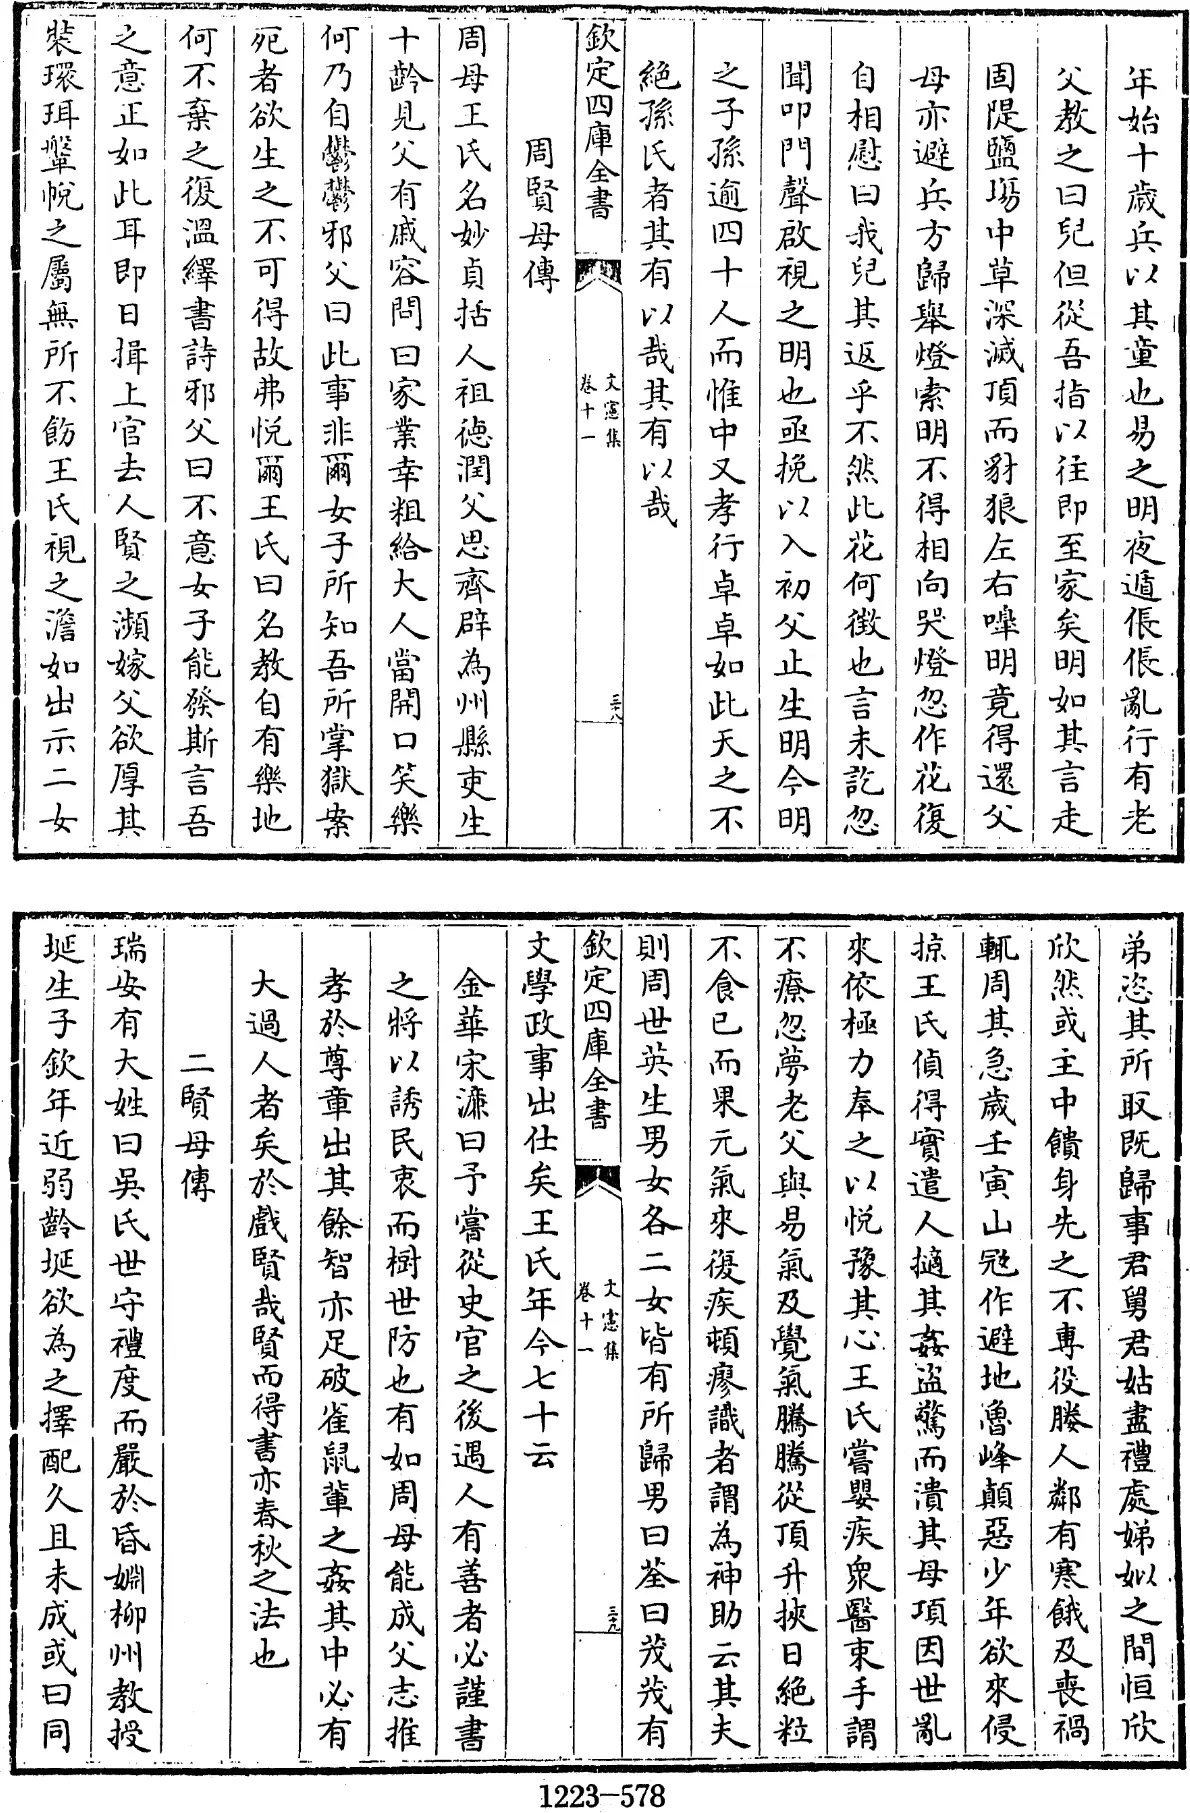 年始十歲兵以其童也易之明夜遁倀倀亂行有老
父教之曰兒但從吾指以往即至家矣明如其言走
固隄鹽場中草深滅頂而豺狼左右嘷明竟得還父
母亦避兵方歸舉燈索明不得相向哭燈忽作花復
自相慰曰我兒其返乎不然此花何徴也言未訖忽
聞叩門聲啟視之明也亟挽以入初父止生明今明
之子孫逾四十人而惟中又孝行卓卓如此天之不
絶孫氏者其有以哉其有以哉
欽定四庫全書
文憲集
卷十一
三十八
周賢母傳
周母王氏名妙貞括人祖德潤父思齊辟為州縣吏生
十齡見父有戚容問曰家業幸粗給大人當開口笑樂
何乃自鬱鬱邪父曰此事非爾女子所知吾所掌獄案
死者欲生之不可得故弗悅爾王氏曰名教自有樂地
何不棄之復溫繹書詩邪父曰不意女子能發斯言吾
之意正如此耳即日揖上官去人賢之瀕嫁父欲厚其
裝環珥鞶帨之屬無所不飭王氏視之澹如出示二女
弟恣其所取既歸事君舅君姑盡禮處娣姒之間恒欣
欣然或主中饋身先之不專役媵人鄰有寒餓及喪禍
輒周其急歲壬寅山冦作避地魯峰顛惡少年欲來侵
掠王氏偵得實遣人擿其姦盜驚而潰其母項因世亂
來依極力奉之以悅豫其心王氏嘗嬰疾衆醫束手謂
不療忽夢老父與易氣及覺氣騰騰從頂升挾日絶粒
不食已而果元氣來復疾頓瘳識者謂為神助云其夫
則周世英生男女各二女皆有所歸男曰荃曰茂茂有
欽定四庫全書
文憲集
卷十一
三十九
文學政事出仕矣王氏年今七十云
金華宋濂曰予嘗從史官之後遇人有善者必謹書
之將以誘民衷而樹世防也有如周母能成父志推
孝於尊章出其餘智亦足破雀鼠輩之姦其中必有
大過人者矣於戲賢哉賢而得書亦春秋之法也
二賢母傳
瑞安有大姓曰吳氏世守禮度而嚴於昏婣柳州教授
埏生子欽年近弱齡埏欲為之擇配久且未成或曰同
1223—578